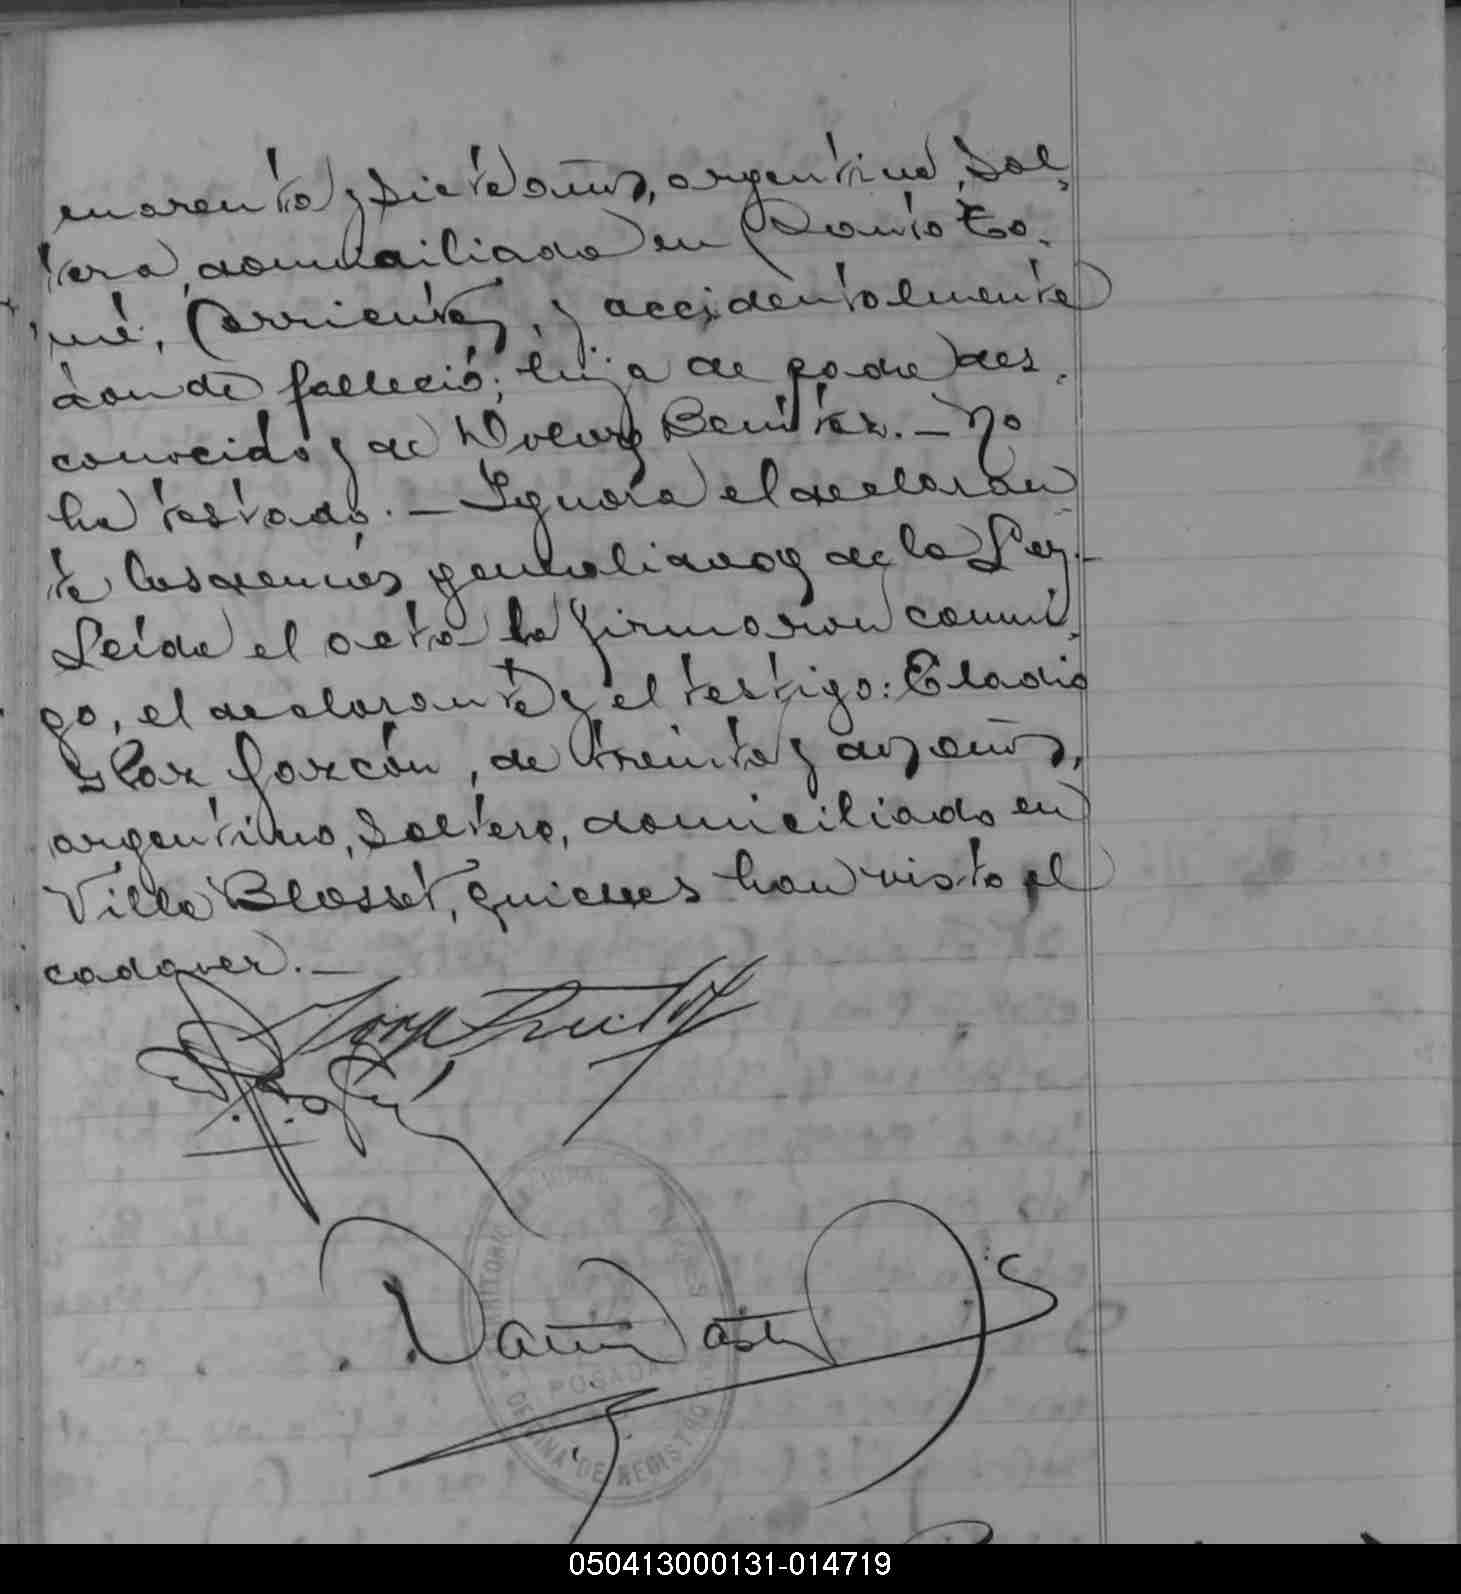 cuarenta y siete años, argentina, sol-
tera, domiciliada en Santo To-
mé, Corrientes, y accidentalmente
donde falleció; hija de padre des-
conocido y de Dolores Benitez. — No
ha testado. — Ignora el declaran
te las demás generalidades de la Ley. —
Leida el acta la firmaron conmi-
go, el declarante y el testigo: Eladio
Garzón, de treinta y dos años,
argentino, soltero, domiciliado en
Villa Blosset, quienes han visto el
cadaver. —
POSADAS
OFICINA DE REGISTRO
050413000131-014719